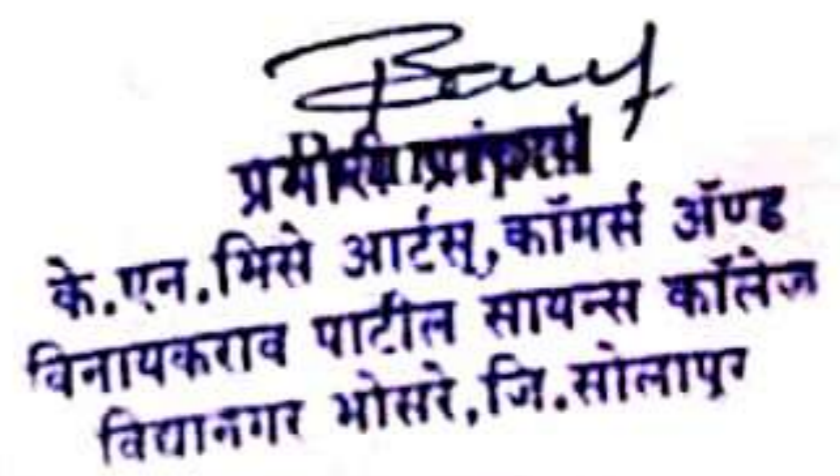 के.एन.भिसे आर्टस्,कॉमर्स अॅण्ड
विनायकराव पाटील सायन्स कॉलेज
विद्यानगर भोसरे,जि.सोलापूर